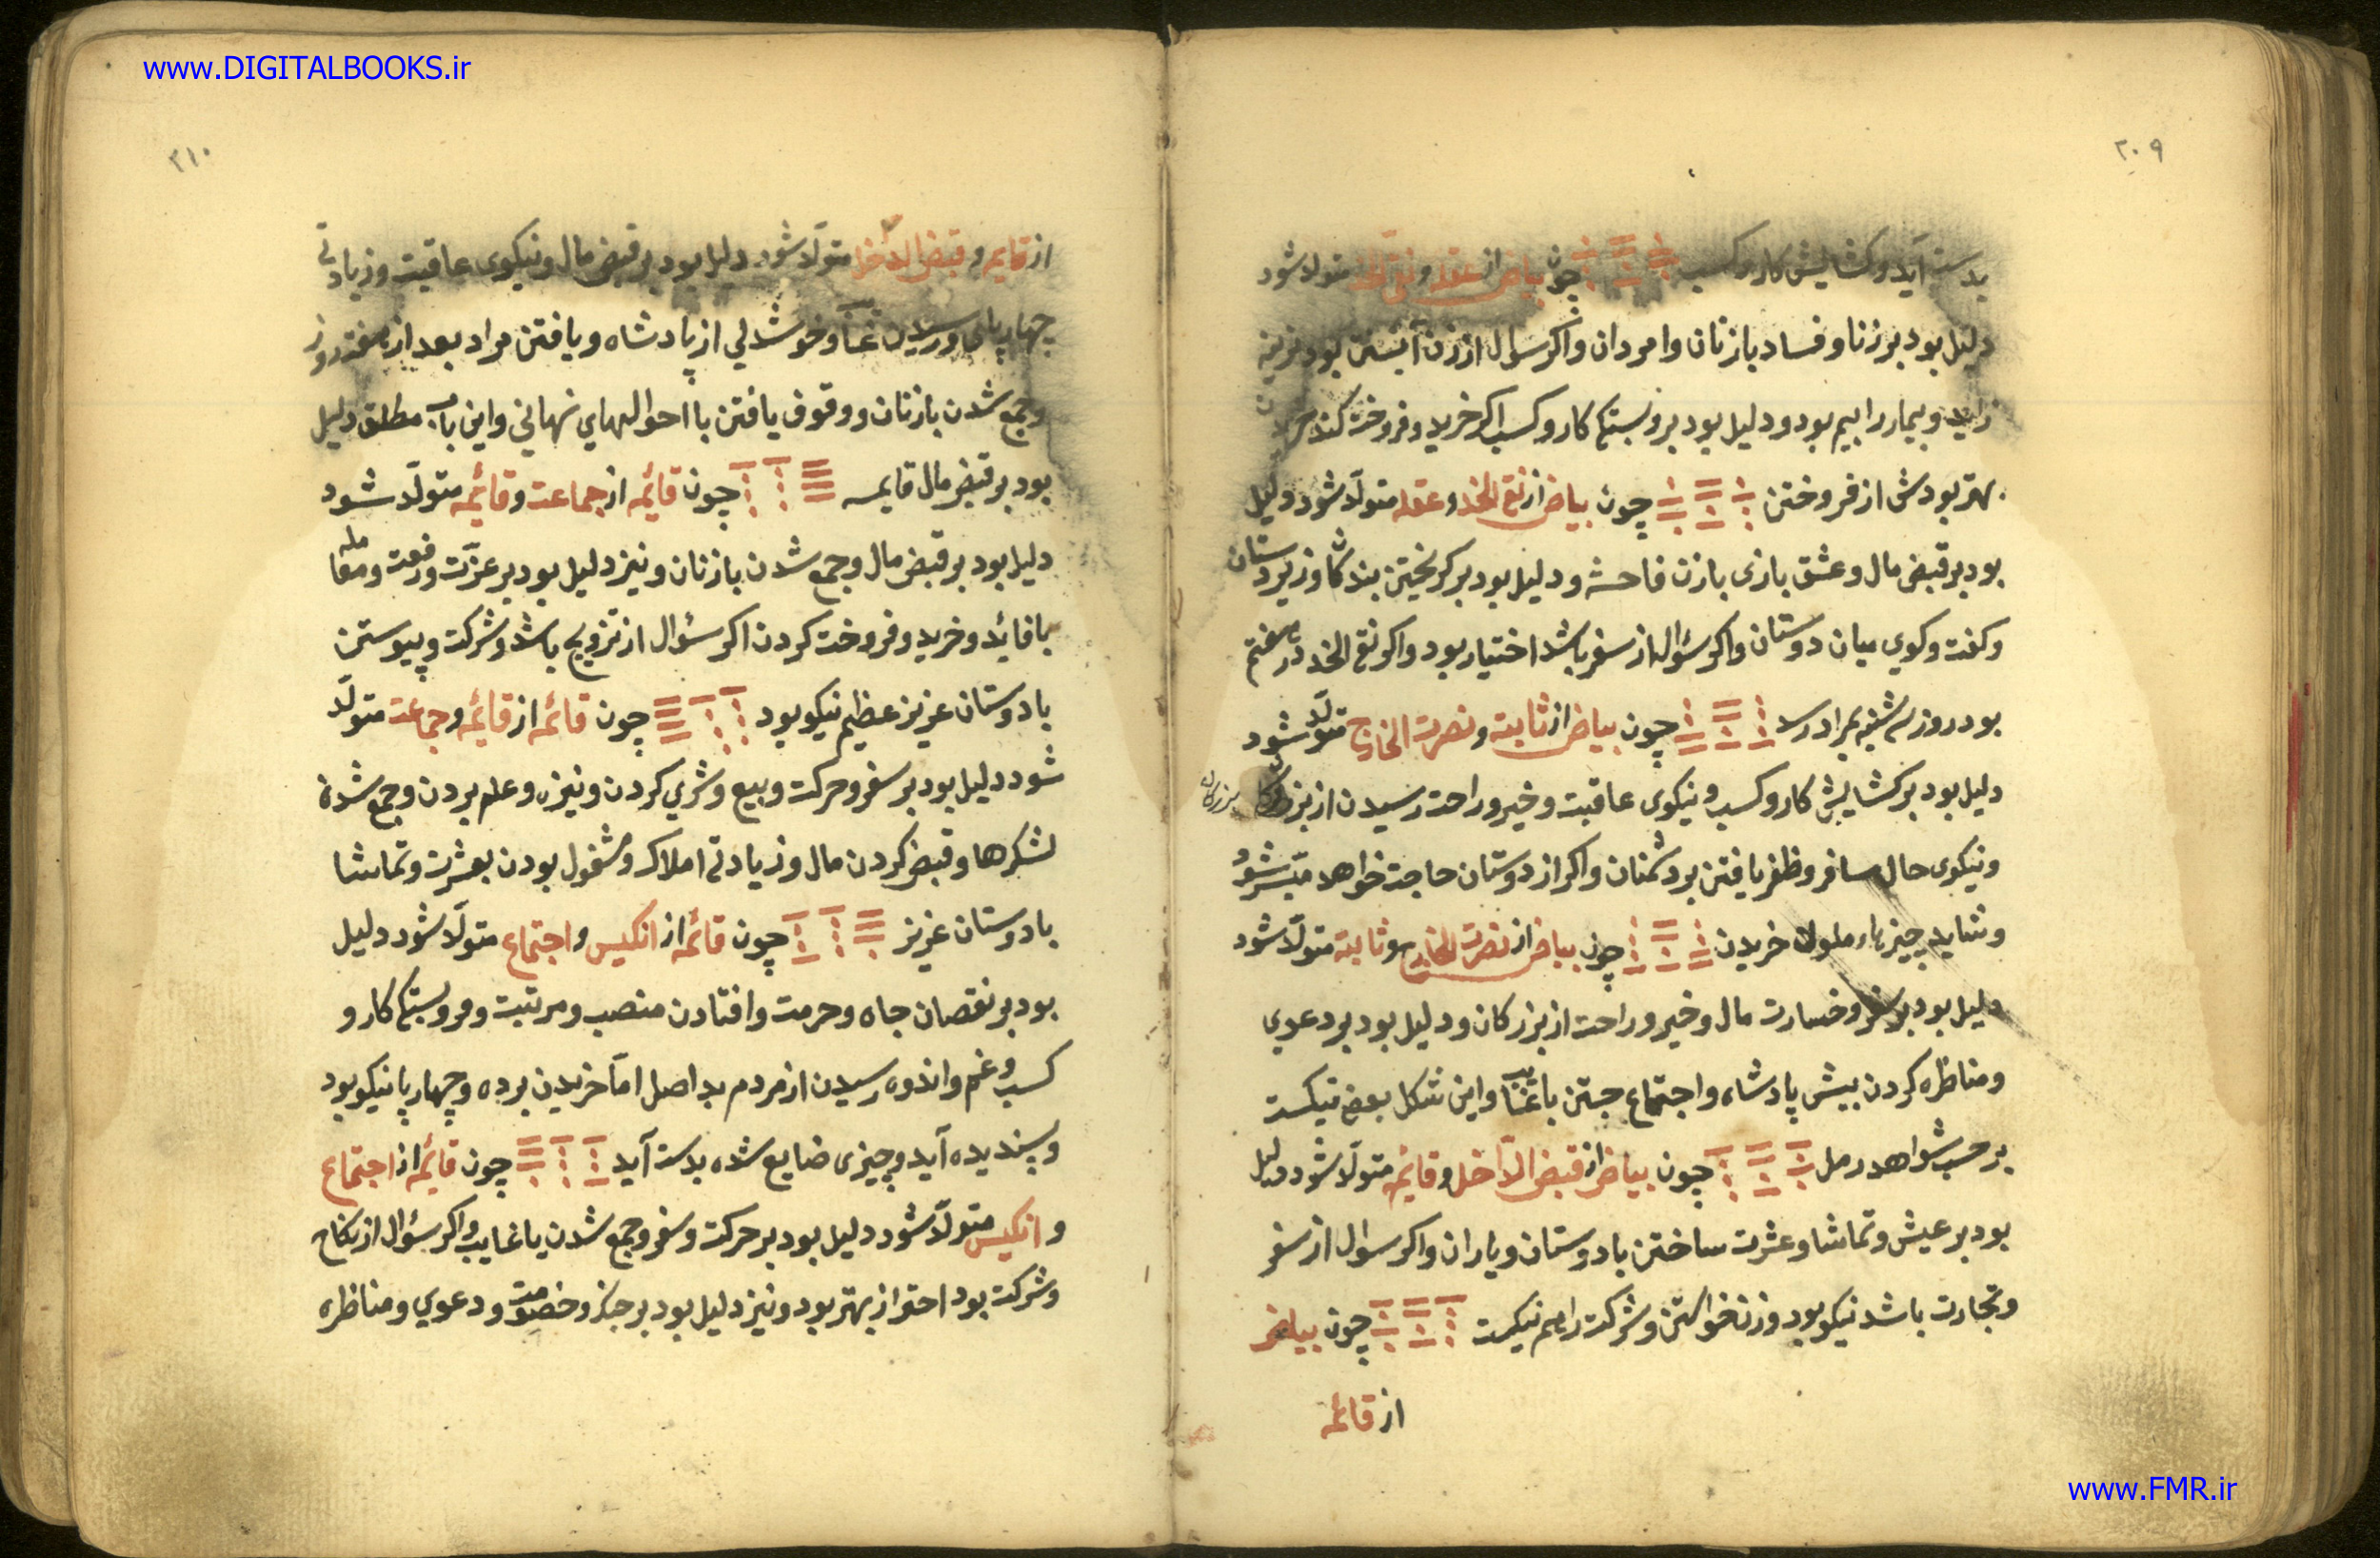 www.DIGITALBOOKS.ir
۲۰۹
بدست آید و کشایش کار و کسب چون بیاض از عقله و نقی الخد متولد شود
دلیل بود بر زنا و فساد با زنان و امردان و اکر سوال از زن آبستن بود نرینه
زاید و بیمار را بیم بود و دلیل بود بر بستکی کار و کسب اکر خرید و فروخت کند
بهتر بودش از فروختن چون بیاض از نقی الخد و عقله متولد شود دلیل
بود بر قبض مال و عشق بازی با زن فاحشه و دلیل بود بر کریختن بندکان و زیردستان
و کفت و کوی میان دوستان و اکر سؤال از سفر باشد اختیار بود و اکر نقی الخد در هفتم
بود روز سه شنبه بمراد رسد چون بیاض از ثابته و نصرت الخارج متولد شود
دلیل بود بر کشایش کار و کسب و نیکوی عاقبت و خیر و راحت رسیدن از بزرکان بزرکان
و نیکوی حال مسافر و ظفر یافتن بر دشمنان و اکر از دوستان حاجت خواهد میسر شود
و شاید چیزهاء ملون خریدن چون بیاض از نصرت الخارج و ثابته متولد شود
دلیل بود بر سفر و خسارت مال و خیر و راحت از بزرکان و دلیل بود بر دعوی
و مناظره کردن پیش پادشاه و اجتماع جستن با غایب و این شکل بعضی نیکست
بر حسب شواهد رمل چون بیاض از قبض الداخل و قائمه متولد شود دلیل
بود بر عیش و تماشا و عشرت ساختن با دوستان و یاران و اکر سوال از سفر
و تجارت باشد نیکو بود و زن خواستن و شرکت را هم نیکست چون بیاض
از قائمه
۲۱۰
از قایمه و قبض الداخل متولد شود دلیل بود بر قبض مال و نیکوی عاقبت و زیادتی
چهارپای و رسیدن غایب و خوشدلی از پادشاه و یافتن مراد بعد از هفت روز
و جمع شدن با زنان و وقوف یافتن با احوالهای نهانی و این باب مطلق دلیل
بود بر قبض مال قایمه چون قائمه از جماعت و قائمه متولد شود
دلیل بود بر قبض مال و جمع شدن با زنان و نیز دلیل بود بر عزت و رفعت و معامله
با فائده و خرید و فروخت کردن اکر سؤال از تزویج باشد و شرکت و پیوستن
با دوستان عزیز عظیم نیکو بود چون قائمه از قائمه و جماعت متولد
شود دلیل بود بر سفر و حرکت و بیع و شری کردن و نیزه و علم بردن و جمع شدن
لشکرها و قبض کردن مال و زیادتی املاک و مشغول بودن بعشرت و تماشا
با دوستان عزیز چون قائمه از انکیس و اجتماع متولد شود دلیل
بود بر نقصان جاه و حرمت و افتادن منصب و مرتبت و فروبستکی کار و
کسب و غم و اندوه رسیدن از مردم بد اصل اما خریدن برده و چهارپا نیکو بود
و پسندیده آید و چیزی ضایع شده بدست آید چون قائمه از اجتماع
و انکیس متولد شود دلیل بود بر حرکت و سفر و جمع شدن با غایب و اکر سؤال از نکاح
و شرکت بود احتراز بهتر بود و نیز دلیل بود بر جنک و خصومت و دعوی و مناظره
www.FMR.ir